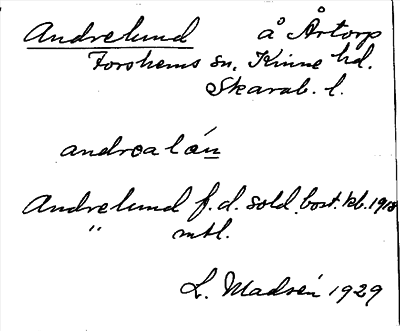 Andrelund å Årtorp
Forshems sn. Kinne hd.
Skarab. l.
andrealún
Andrelund f.d. sold. bost. kb. 1918
" mtl.
L. Madsén 1929